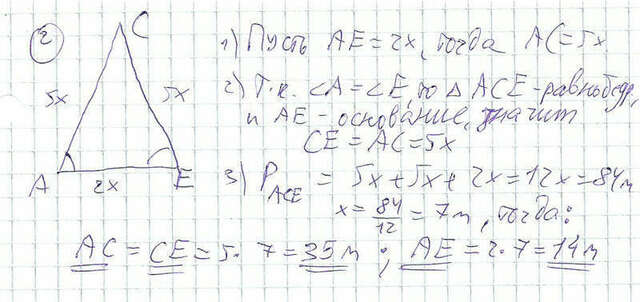 2
C
5x
5x
A
2x
E
1) Пусть AE=2x, тогда AC=5x.
2) Т.к. ∠A=∠E, то △ACE-равнобедр.
и AE-основание, значит
CE=AC=5x
3) P_ACE = 5x+5x+2x=12x=84м
x=84/12=7м, тогда:
AC=CE=5·7=35м; AE=2·7=14м